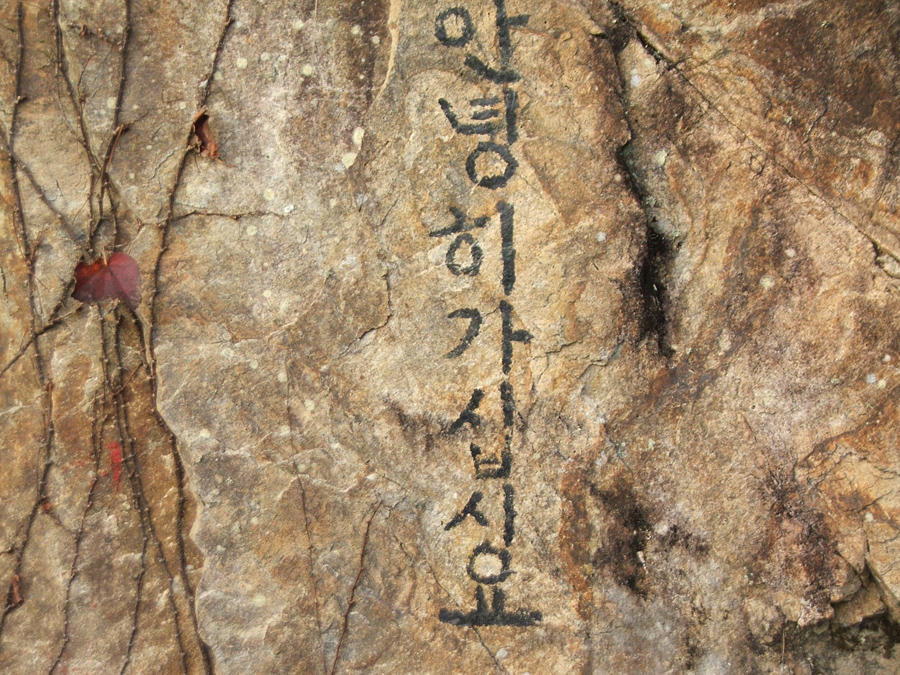 안녕히가십시요